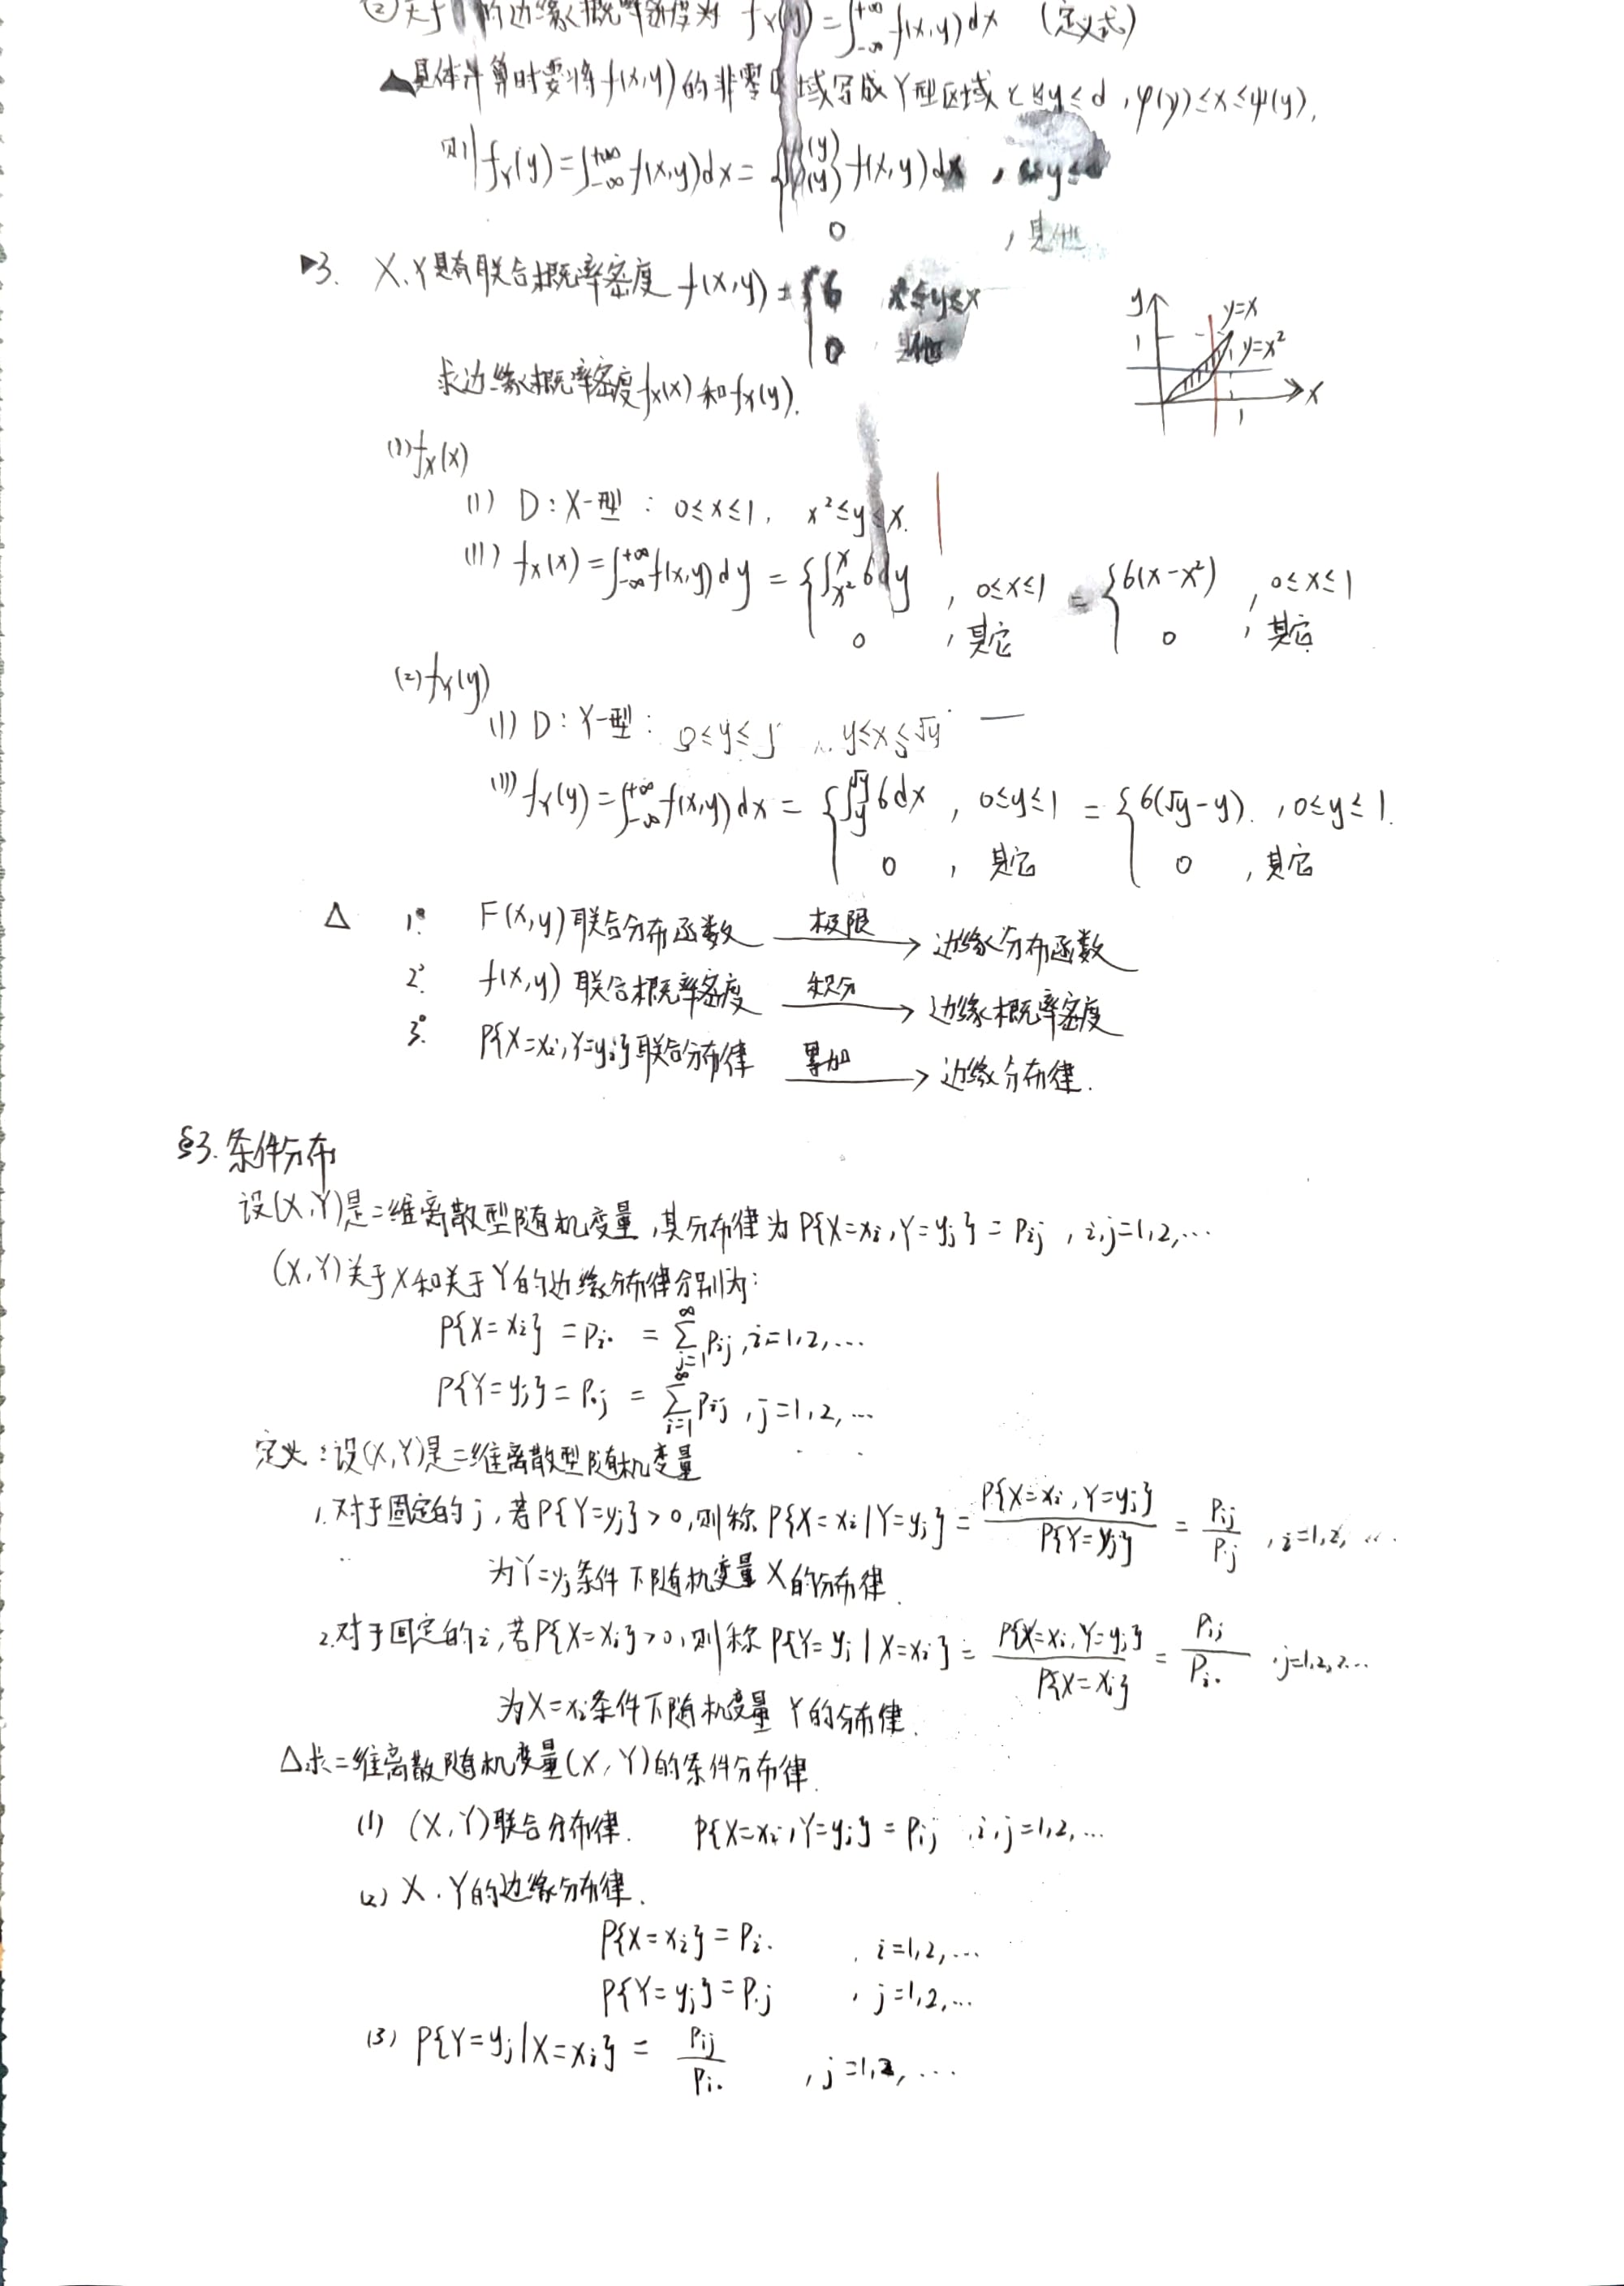 ② 关于 的边缘概率密度为 f_Y(y)=∫_{-∞}^{+∞} f(x,y)dx (定义式)
▲具体计算时要将f(x,y)的非零区域写成Y型区域 c≤y≤d, φ(y)≤x≤ψ(y),
则 f_Y(y)=∫_{-∞}^{+∞} f(x,y)dx= { ∫ f(x,y)dx , c≤y≤d
0 , 其他
▶3. X、Y具有联合概率密度 f(x,y)= { 6 x²≤y≤x
0 其他
y
1
y=x
y=x²
x
1
求边缘概率密度f_X(x)和f_Y(y).
(1) f_X(x)
(I) D: X-型: 0≤x≤1, x²≤y≤x.
(II) f_X(x)=∫_{-∞}^{+∞} f(x,y)dy = { ∫_{x²}^{x} 6dy , 0≤x≤1 = { 6(x-x²) , 0≤x≤1
0 , 其它 0 , 其它
(2) f_Y(y)
(I) D: Y-型: 0≤y≤1 , y≤x≤√y —
(II) f_Y(y)=∫_{-∞}^{+∞} f(x,y)dx = { ∫_{y}^{√y} 6dx , 0≤y≤1 = { 6(√y-y). , 0≤y≤1.
0 , 其它 0 , 其它
△ 1° F(x,y)联合分布函数 —极限→ 边缘分布函数
2° f(x,y) 联合概率密度 —积分→ 边缘概率密度
3° P{X=x_i,Y=y_j}联合分布律 —累加→ 边缘分布律.
§3. 条件分布
设(X,Y)是二维离散型随机变量,其分布律为P{X=x_i,Y=y_j}=P_{ij}, i,j=1,2,…
(X,Y)关于X和关于Y的边缘分布律分别为:
P{X=x_i}=P_{i·}=∑_{j=1}^{∞} P_{ij}, i=1,2,…
P{Y=y_j}=P_{·j}=∑_{i=1}^{∞} P_{ij}, j=1,2,…
定义:设(X,Y)是二维离散型随机变量
1.对于固定的j,若P{Y=y_j}>0,则称P{X=x_i|Y=y_j}=P{X=x_i,Y=y_j}/P{Y=y_j}=P_{ij}/P_{·j}, i=1,2,…
为Y=y_j条件下随机变量X的分布律.
2.对于固定的i,若P{X=x_i}>0,则称P{Y=y_j|X=x_i}=P{X=x_i,Y=y_j}/P{X=x_i}=P_{ij}/P_{i·}, j=1,2,…
为X=x_i条件下随机变量Y的分布律.
△求二维离散随机变量(X,Y)的条件分布律.
(1) (X,Y)联合分布律. P{X=x_i,Y=y_j}=P_{ij}, i,j=1,2,…
(2) X、Y的边缘分布律.
P{X=x_i}=P_{i·} , i=1,2,…
P{Y=y_j}=P_{·j} , j=1,2,…
(3) P{Y=y_j|X=x_i}=P_{ij}/P_{i·} , j=1,2,…